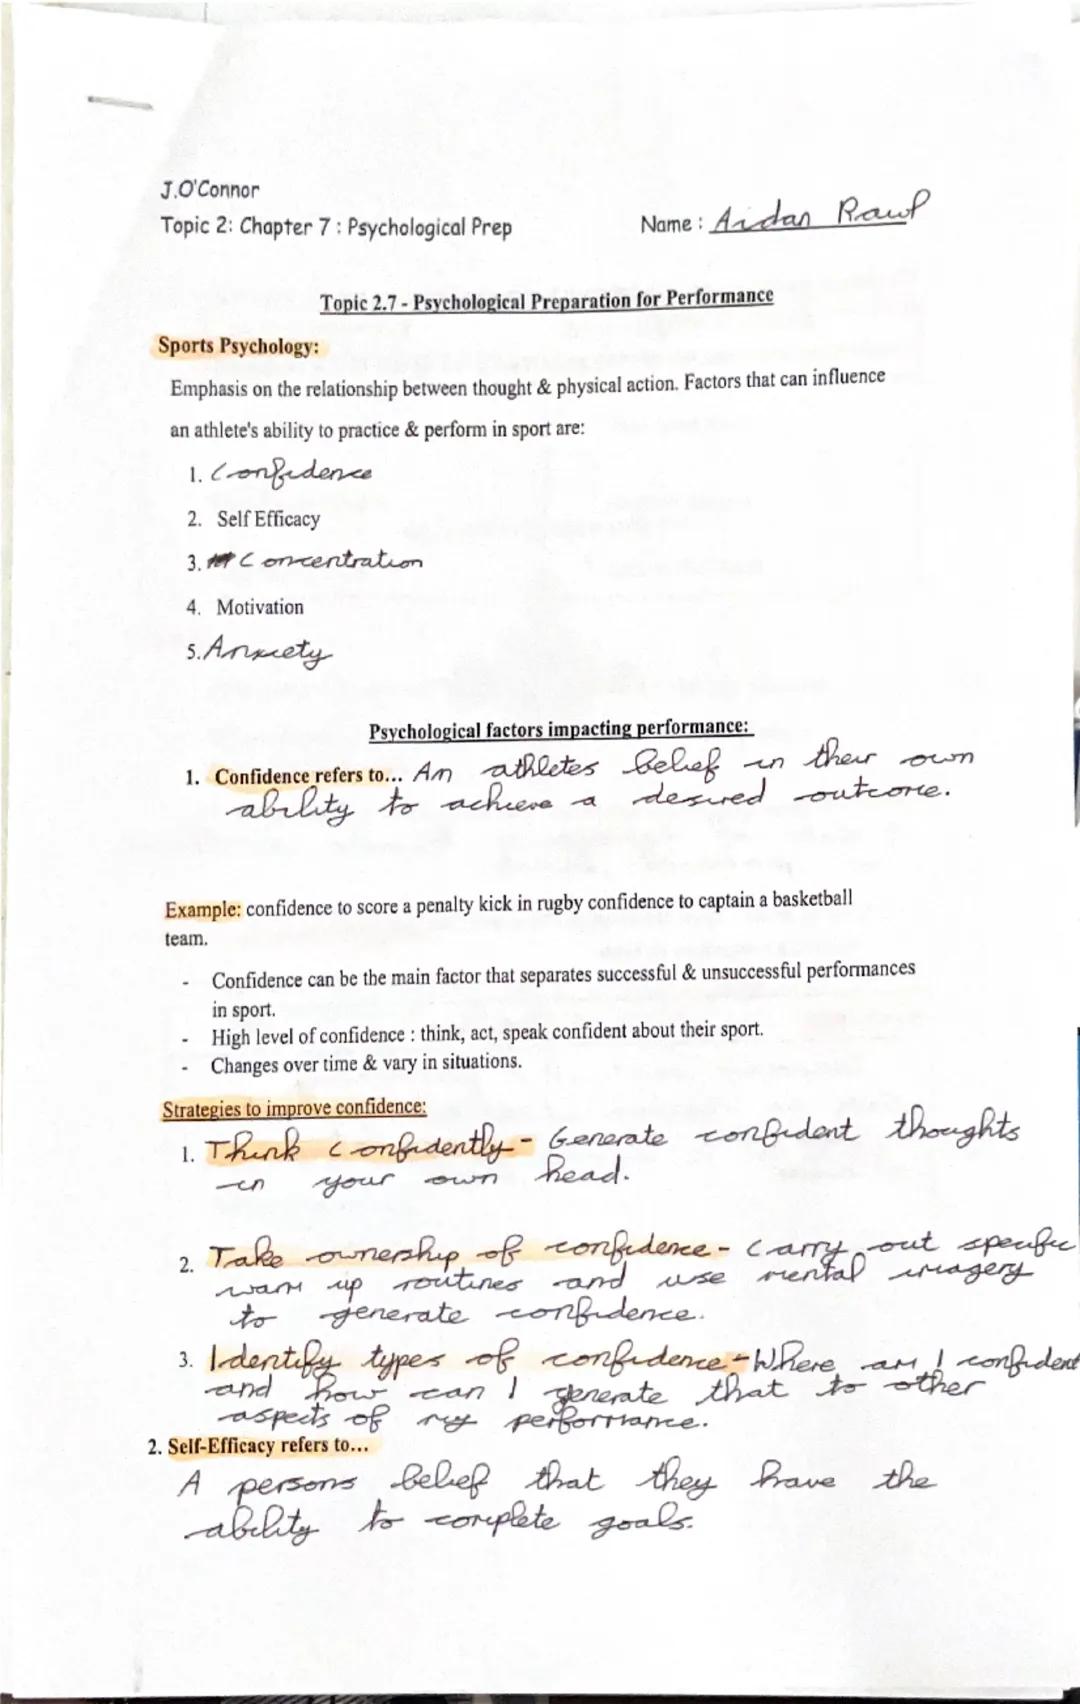 J.O'Connor
Topic 2: Chapter 7 : Psychological Prep
Name : Aidan Rawl
Topic 2.7 - Psychological Preparation for Performance
Sports Psychology:
Emphasis on the relationship between thought & physical action. Factors that can influence
an athlete's ability to practice & perform in sport are:
1. Confidence
2. Self Efficacy
3. Concentration
4. Motivation
5. Anxiety
Psychological factors impacting performance:
1. Confidence refers to... An athletes belief in their own
ability to achieve a desired outcome.
Example: confidence to score a penalty kick in rugby confidence to captain a basketball
team.
- Confidence can be the main factor that separates successful & unsuccessful performances
in sport.
- High level of confidence : think, act, speak confident about their sport.
- Changes over time & vary in situations.
Strategies to improve confidence:
1. Think Confidently - Generate confident thoughts
in your own head.
2. Take ownership of confidence - Carry out specific
warm up routines and use mental imagery
to generate confidence.
3. Identify types of confidence - Where am I confident
and how can I generate that to other
aspects of my performance.
2. Self-Efficacy refers to...
A persons belief that they have the
ability to complete goals.